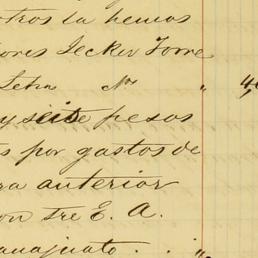 otros la hemos
ores Jecker Torre
Letra No " 4,0
y siete pesos
s por gastos de
ra anterior
on Tre E. A.
anajuato . . "